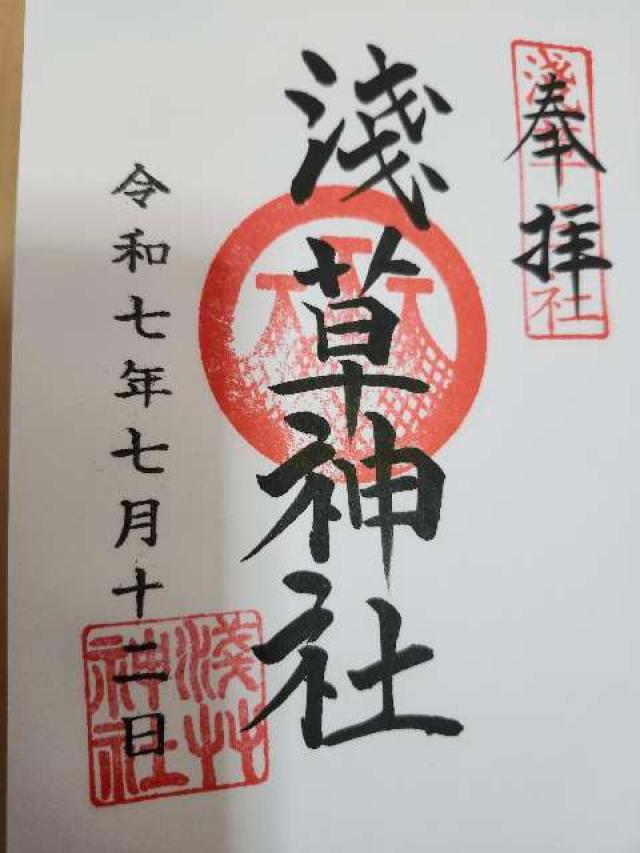 奉拝
淺草社
淺草神社
令和七年七月十二日
淺草神社